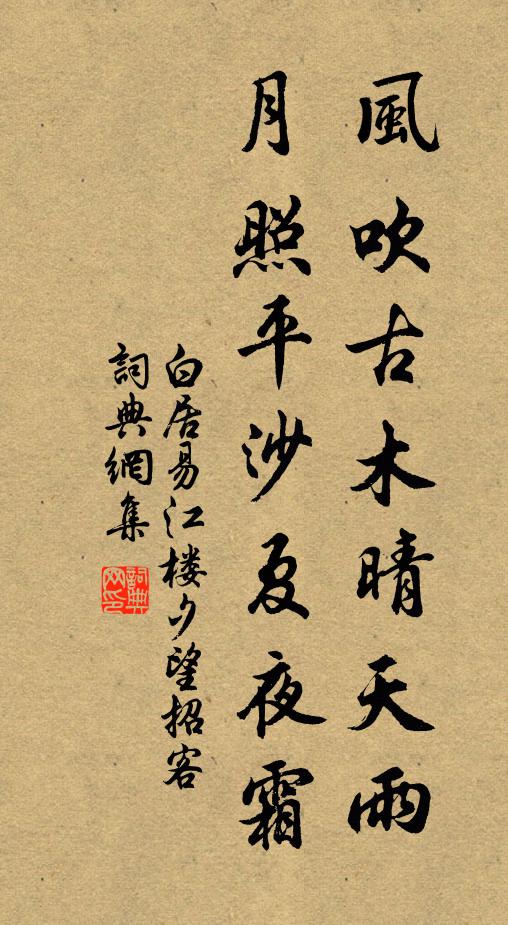 風吹古木晴天雨
月照平沙夏夜霜
白居易江楼夕望招客
詞典網集
詞典网印